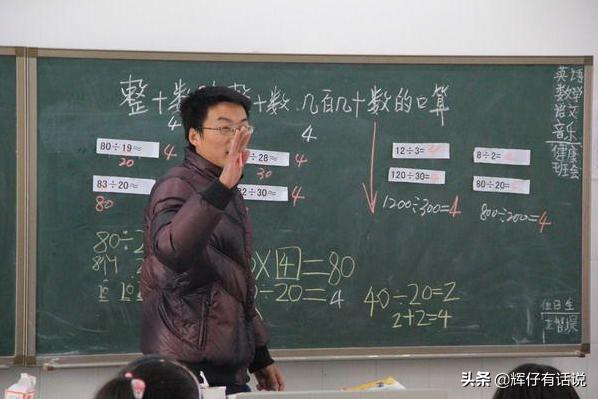 整十数 整十数、几百几十数的口算
英语
数学
语文
音乐
健康
班会
80÷19≈ 4
20
÷28≈ 4
30
83÷20≈
80
82÷30≈ 4
4
4
12÷3=4
8÷2=4
120÷30=4
80÷20=4
1200÷300=4
800÷200=4
80÷2
×4=80
÷20=4
40÷20=2
2+2=4
值日生
头条 @辉仔有话说